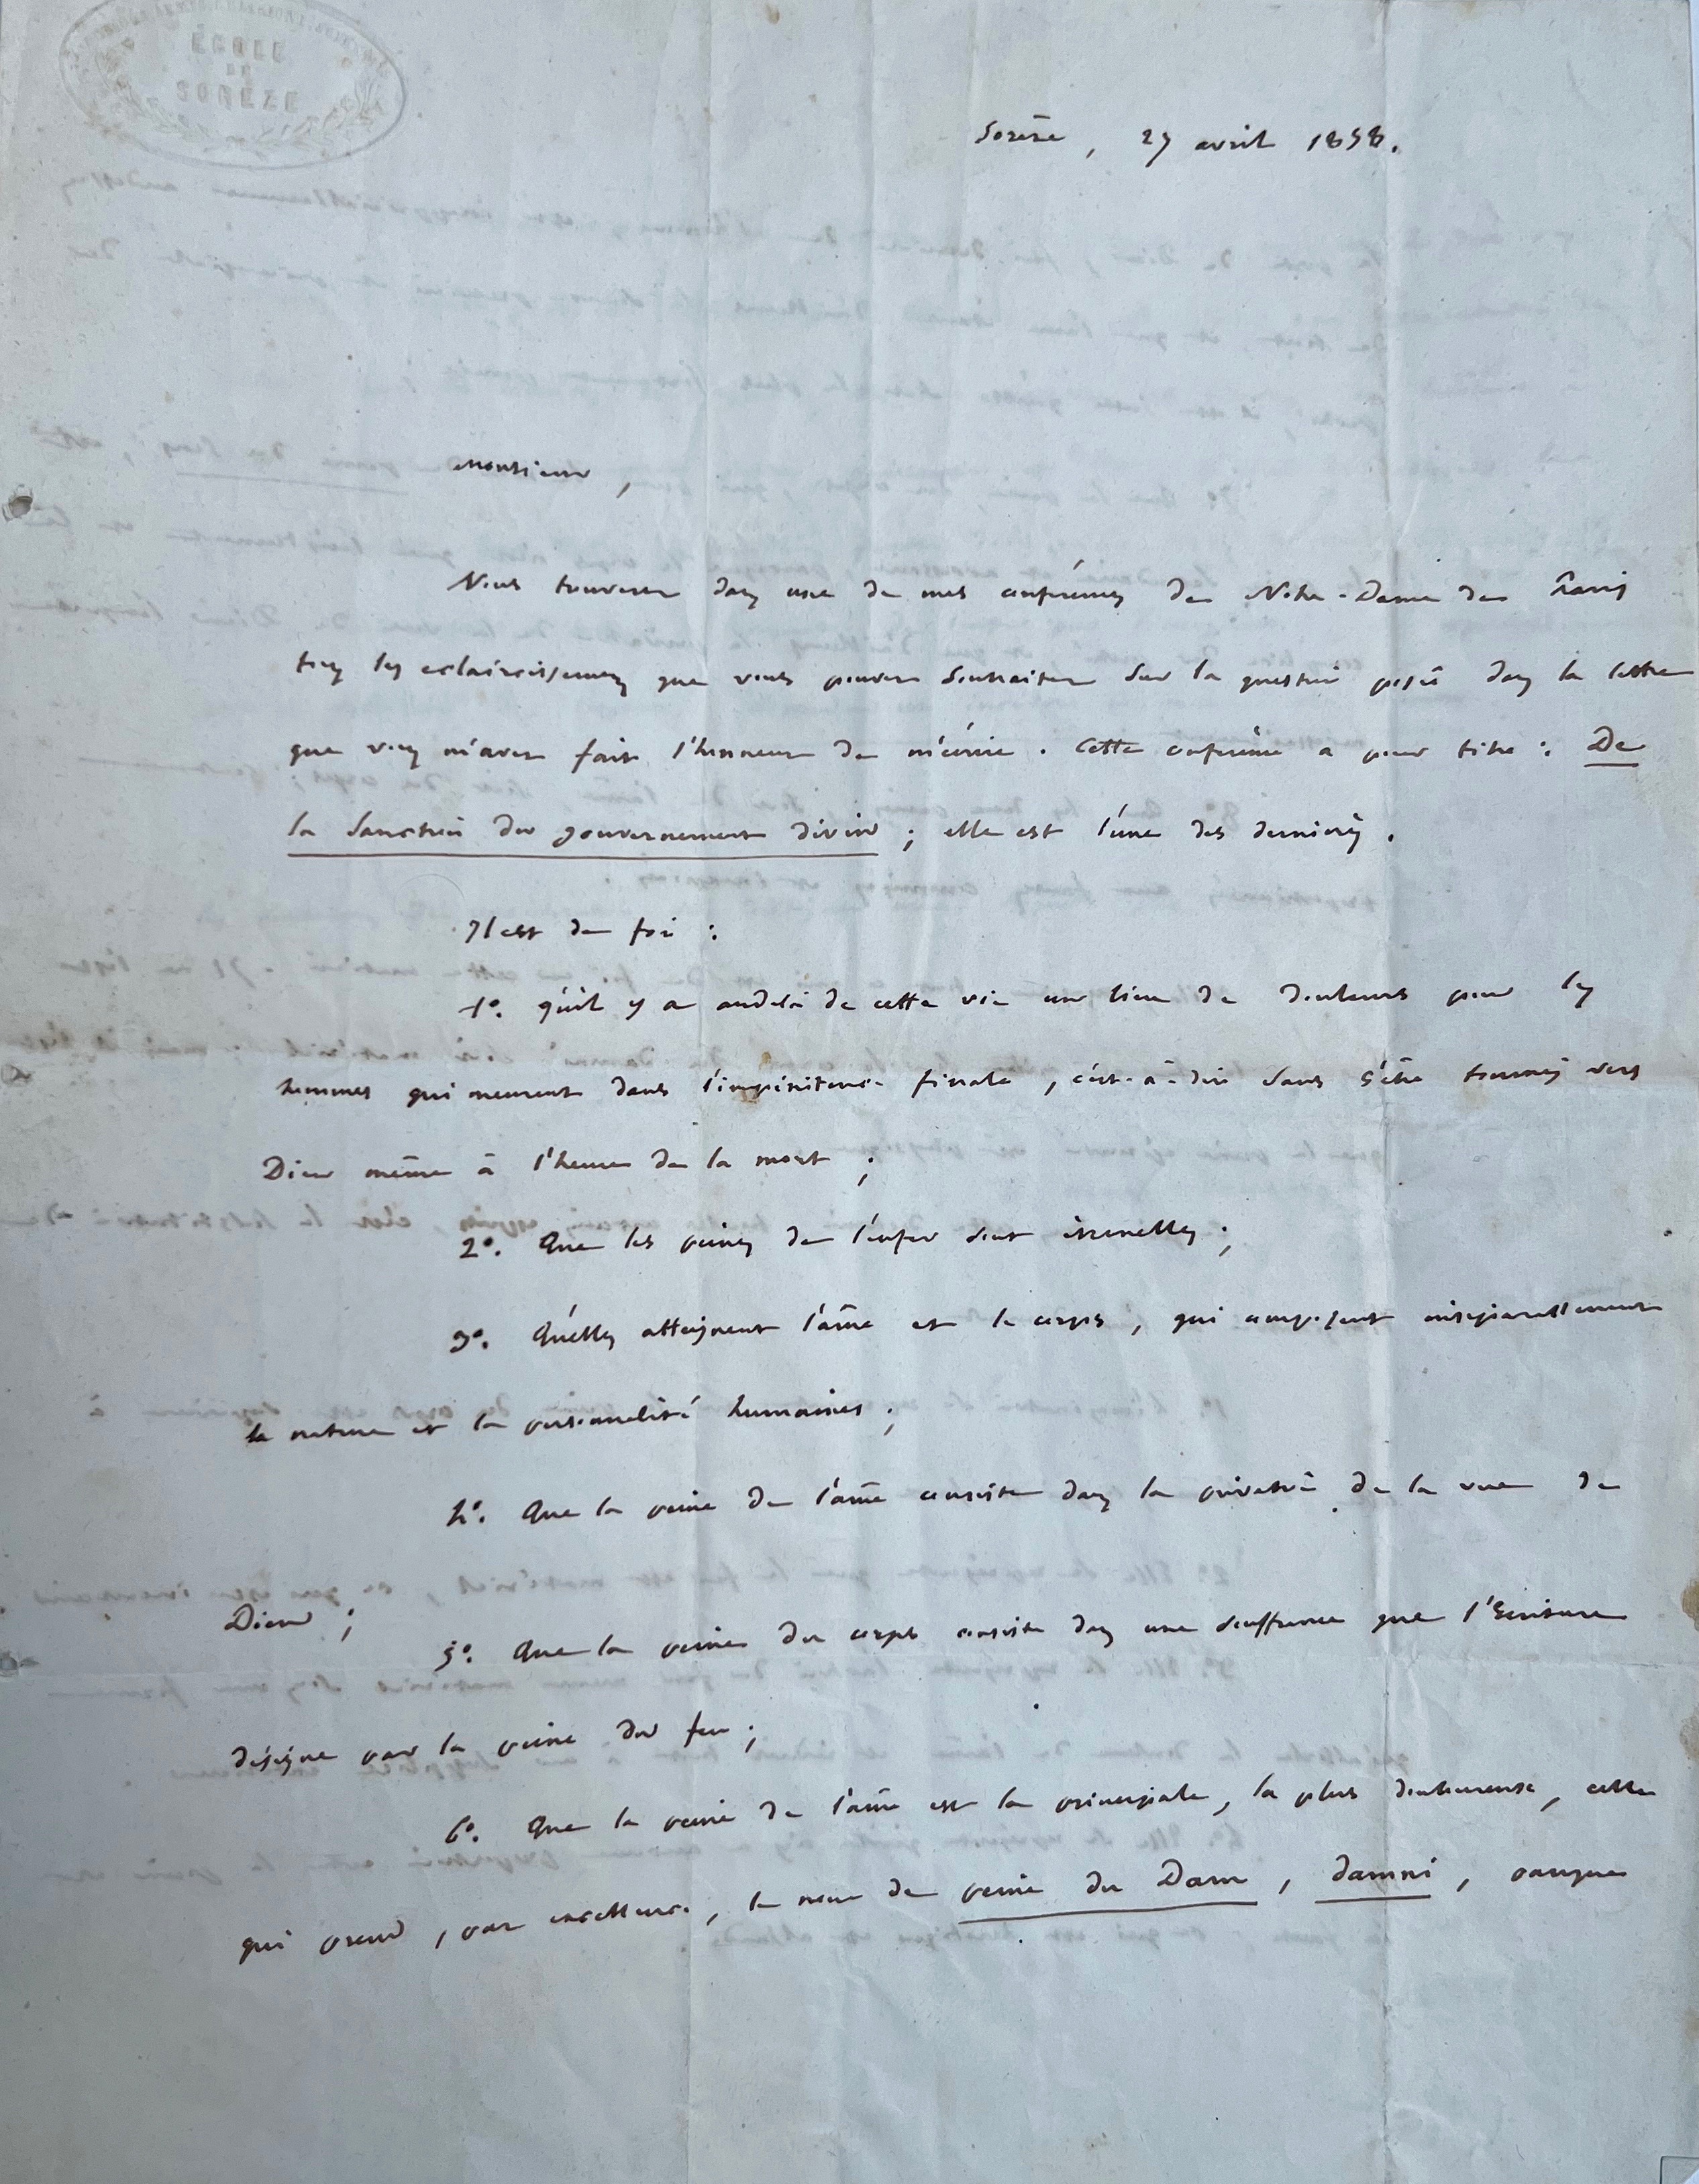 ÉCOLE
DE
SORÈZE
Sorèze, 27 avril 1858.
Monsieur,
Vous trouverez dans une de mes conférences de Notre-Dame de Paris
tous les eclaircissemens que vous pouvez souhaiter sur la question posée dans la lettre
que vous m'avez fait l'honneur de m'écrire. Cette conférence a pour titre : De
la Sanction du gouvernement divin ; elle est l'une des dernières.
Il est de foi :
1º. qu'il y a audelà de cette vie un lieu de douleurs pour les
hommes qui meurent dans l'impénitence finale, c'est-à-dire sans s'être tournés vers
Dieu même à l'heure de la mort ;
2º. Que les peines de l'enfer sont éternelles ;
3º. Qu'elles atteignent l'âme et le corps, qui composent inséparablement
la nature et la personnalité humaines ;
4º. Que la peine de l'âme consiste dans la privation de la vue de
Dieu ;
5º. Que la peine du corps consiste dans une souffrance que l'Ecriture
désigne par la peine du feu ;
6º. Que la peine de l'âme est la principale, la plus douloureuse, celle
qui prend, par excellence, le nom de peine du Dam, damni, parce que